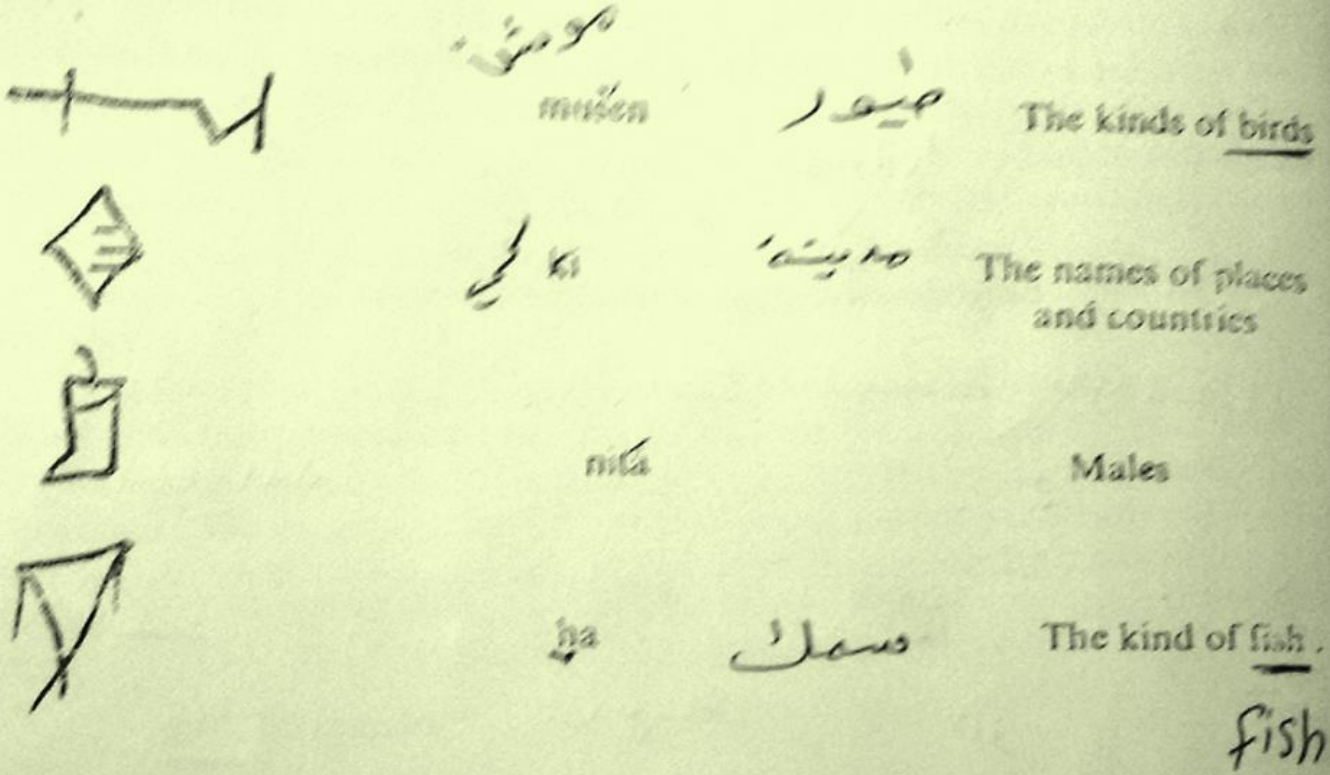 موشن
mušen طيور The kinds of birds
كي ki مدينة The names of places
and countries
nita Males
ḫa سمك The kind of fish .
fish